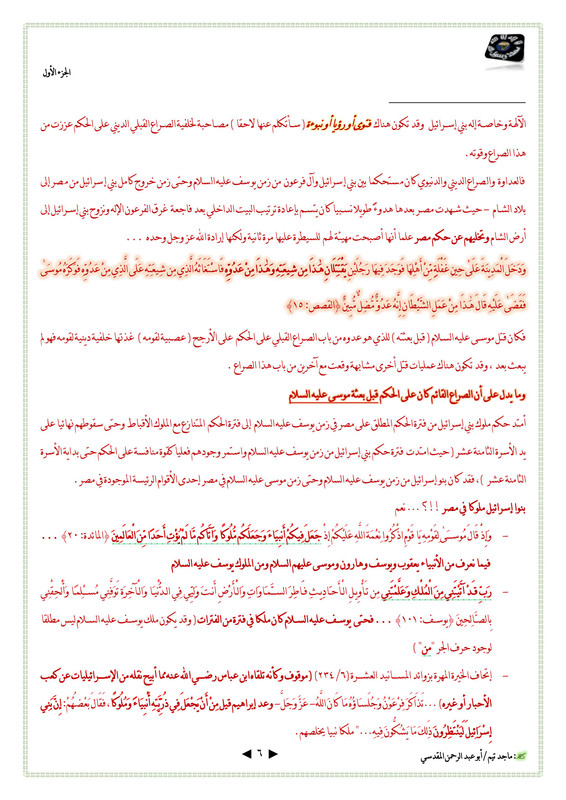 الجزء الأول
الآلهة وخاصة إله بني إسرائيل وقد تكون هناك فتوى أو رؤيا أو نبوءة ( سأتكلم عنها لاحقا ) مصاحبة لخلفية الصراع القبلي الديني على الحكم عززت من
هذا الصراع وقوته .
فالعداوة والصراع الديني والدنيوي كان مستحكما بين بني إسرائيل وآل فرعون من زمن يوسف عليه السلام وحتى زمن خروج كامل بني إسرائيل من مصر إلى
بلاد الشام – حيث شهدت مصر بعدها هدوءً طويلا نسبيا كان يتسم بإعادة ترتيب البيت الداخلي بعد فاجعة غرق الفرعون الإله ونزوح بني إسرائيل إلى
أرض الشام وتخليهم عن حكم مصر علما أنها أصبحت مهيئة لهم للسيطرة عليها مرة ثانية ولكنها إرادة الله عز وجل وحده ...
وَدَخَلَ الْمَدِينَةَ عَلَى حِينِ غَفْلَةٍ مِّنْ أَهْلِهَا فَوَجَدَ فِيهَا رَجُلَيْنِ يَقْتَتِلَانِ هَٰذَا مِن شِيعَتِهِ وَهَٰذَا مِنْ عَدُوِّهِ فَاسْتَغَاثَهُ الَّذِي مِن شِيعَتِهِ عَلَى الَّذِي مِنْ عَدُوِّهِ فَوَكَزَهُ مُوسَىٰ
فَقَضَىٰ عَلَيْهِ قَالَ هَٰذَا مِنْ عَمَلِ الشَّيْطَانِ إِنَّهُ عَدُوٌّ مُّضِلٌّ مُّبِينٌ ﴿القصص: ١٥﴾
فكان قتل موسى عليه السلام ( قبل بعثته ) للذي هو عدوه من باب الصراع القبلي على الحكم على الأرجح ( عصبية لقومه ) غذتها خلفية دينية لقومه فهو لم
يبعث بعد ، وقد تكون هناك عمليات قتل أخرى مشابهة وقعت مع آخرين من باب هذا الصراع .
وما يدل على أن الصراع القائم كان على الحكم قبل بعثة موسى عليه السلام
أمتد حكم ملوك بني إسرائيل من فترة الحكم المطلق على مصر في زمن يوسف عليه السلام إلى فترة الحكم المتنازع مع الملوك الأقباط وحتى سقوطهم نهائيا على
يد الأسرة الثامنة عشر ( حيث امتدت فترة حكم بني إسرائيل من زمن يوسف عليه السلام واستمر وجودهم فعليا كقوة منافسة على الحكم حتى بداية الأسرة
الثامنة عشر ) ، فقد كان بنوا إسرائيل من زمن يوسف عليه السلام وحتى زمن موسى عليه السلام في مصر إحدى الأقوام الرئيسة الموجودة في مصر .
بنوا إسرائيل ملوكا في مصر !!؟ ... نعم
– وَإِذْ قَالَ مُوسَىٰ لِقَوْمِهِ يَا قَوْمِ اذْكُرُوا نِعْمَةَ اللَّهِ عَلَيْكُمْ إِذْ جَعَلَ فِيكُمْ أَنبِيَاءَ وَجَعَلَكُم مُّلُوكًا وَآتَاكُم مَّا لَمْ يُؤْتِ أَحَدًا مِّنَ الْعَالَمِينَ ﴿المائدة: ٢٠﴾ ...
فيما نعرف من الأنبياء يعقوب ويوسف وهارون وموسى عليهم السلام ومن الملوك يوسف عليه السلام
– رَبِّ قَدْ آتَيْتَنِي مِنَ الْمُلْكِ وَعَلَّمْتَنِي مِن تَأْوِيلِ الْأَحَادِيثِ فَاطِرَ السَّمَاوَاتِ وَالْأَرْضِ أَنتَ وَلِيِّي فِي الدُّنْيَا وَالْآخِرَةِ تَوَفَّنِي مُسْلِمًا وَأَلْحِقْنِي
بِالصَّالِحِينَ ﴿يوسف: ١٠١﴾ ... فحتى يوسف عليه السلام كان ملكا في فترة من الفترات ( وقد يكون ملك يوسف عليه السلام ليس مطلقا
لوجود حرف الجر "مِن" )
– إتحاف الخيرة المهرة بزوائد المسانيد العشرة (٦/ ٢٣٤) (موقوف وكأنه تلقاه ابن عباس رضي الله عنه مما أبيح نقله من الإسرائيليات عن كعب
الأحبار أو غيره) ... تَذَاكَرَ فِرْعَوْنُ وَجُلَسَاؤُهُ مَا كَانَ اللَّهُ- عَزَّ وَجَلَّ- وعد إبراهيم قبل مِنْ أَنْ يَجْعَلَ فِي ذُرِّيَّتِهِ أَنْبِيَاءَ وَمُلُوكًا ، فَقَالَ بَعْضُهُمْ: إِنَّ بَنِي
إِسْرَائِيلَ لَيَنْتَظِرُونَ ذَلِكَ مَا يَشُكُّونَ فِيهِ..." ملكا نبيا يخلصهم .
٦
: ماجد تيم / أبو عبد الرحمن المقدسي